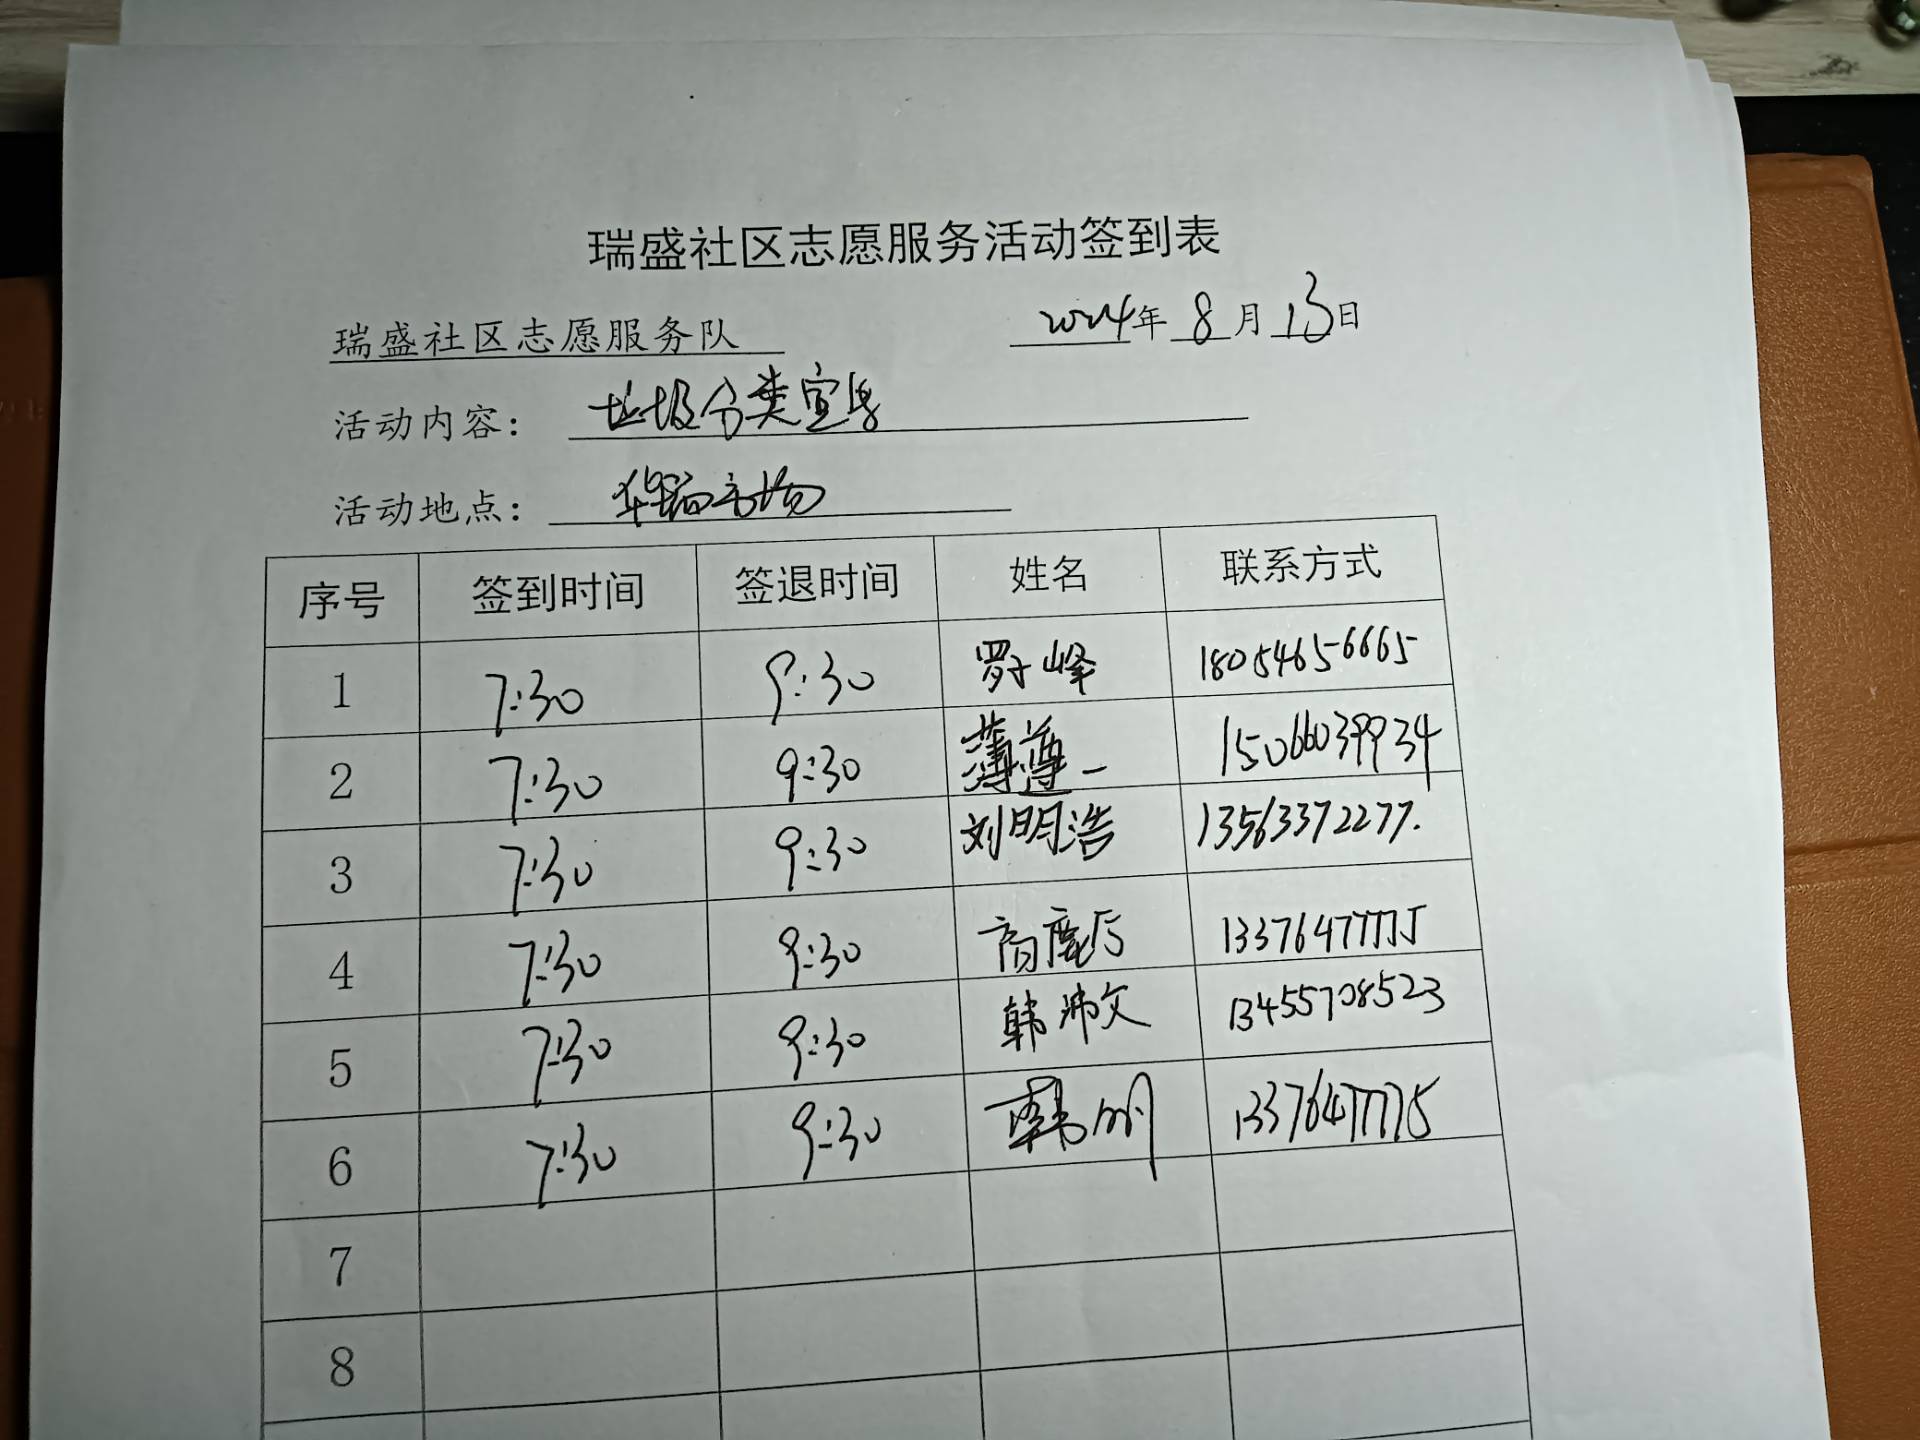 瑞盛社区志愿服务活动签到表
瑞盛社区志愿服务队 2024年 8月 13日
活动内容： 垃圾分类宣传
活动地点： 市场
序号 签到时间 签退时间 姓名 联系方式
1 7:30 9:30 罗峰 18054656665
2 7:30 9:30 薄尊一 15066039934
3 7:30 9:30 刘明浩 13563372277.
4 7:30 9:30 高 13376477775
5 7:30 9:30 韩沛文 13455708523
6 7:30 9:30 韩 13376477775
7
8